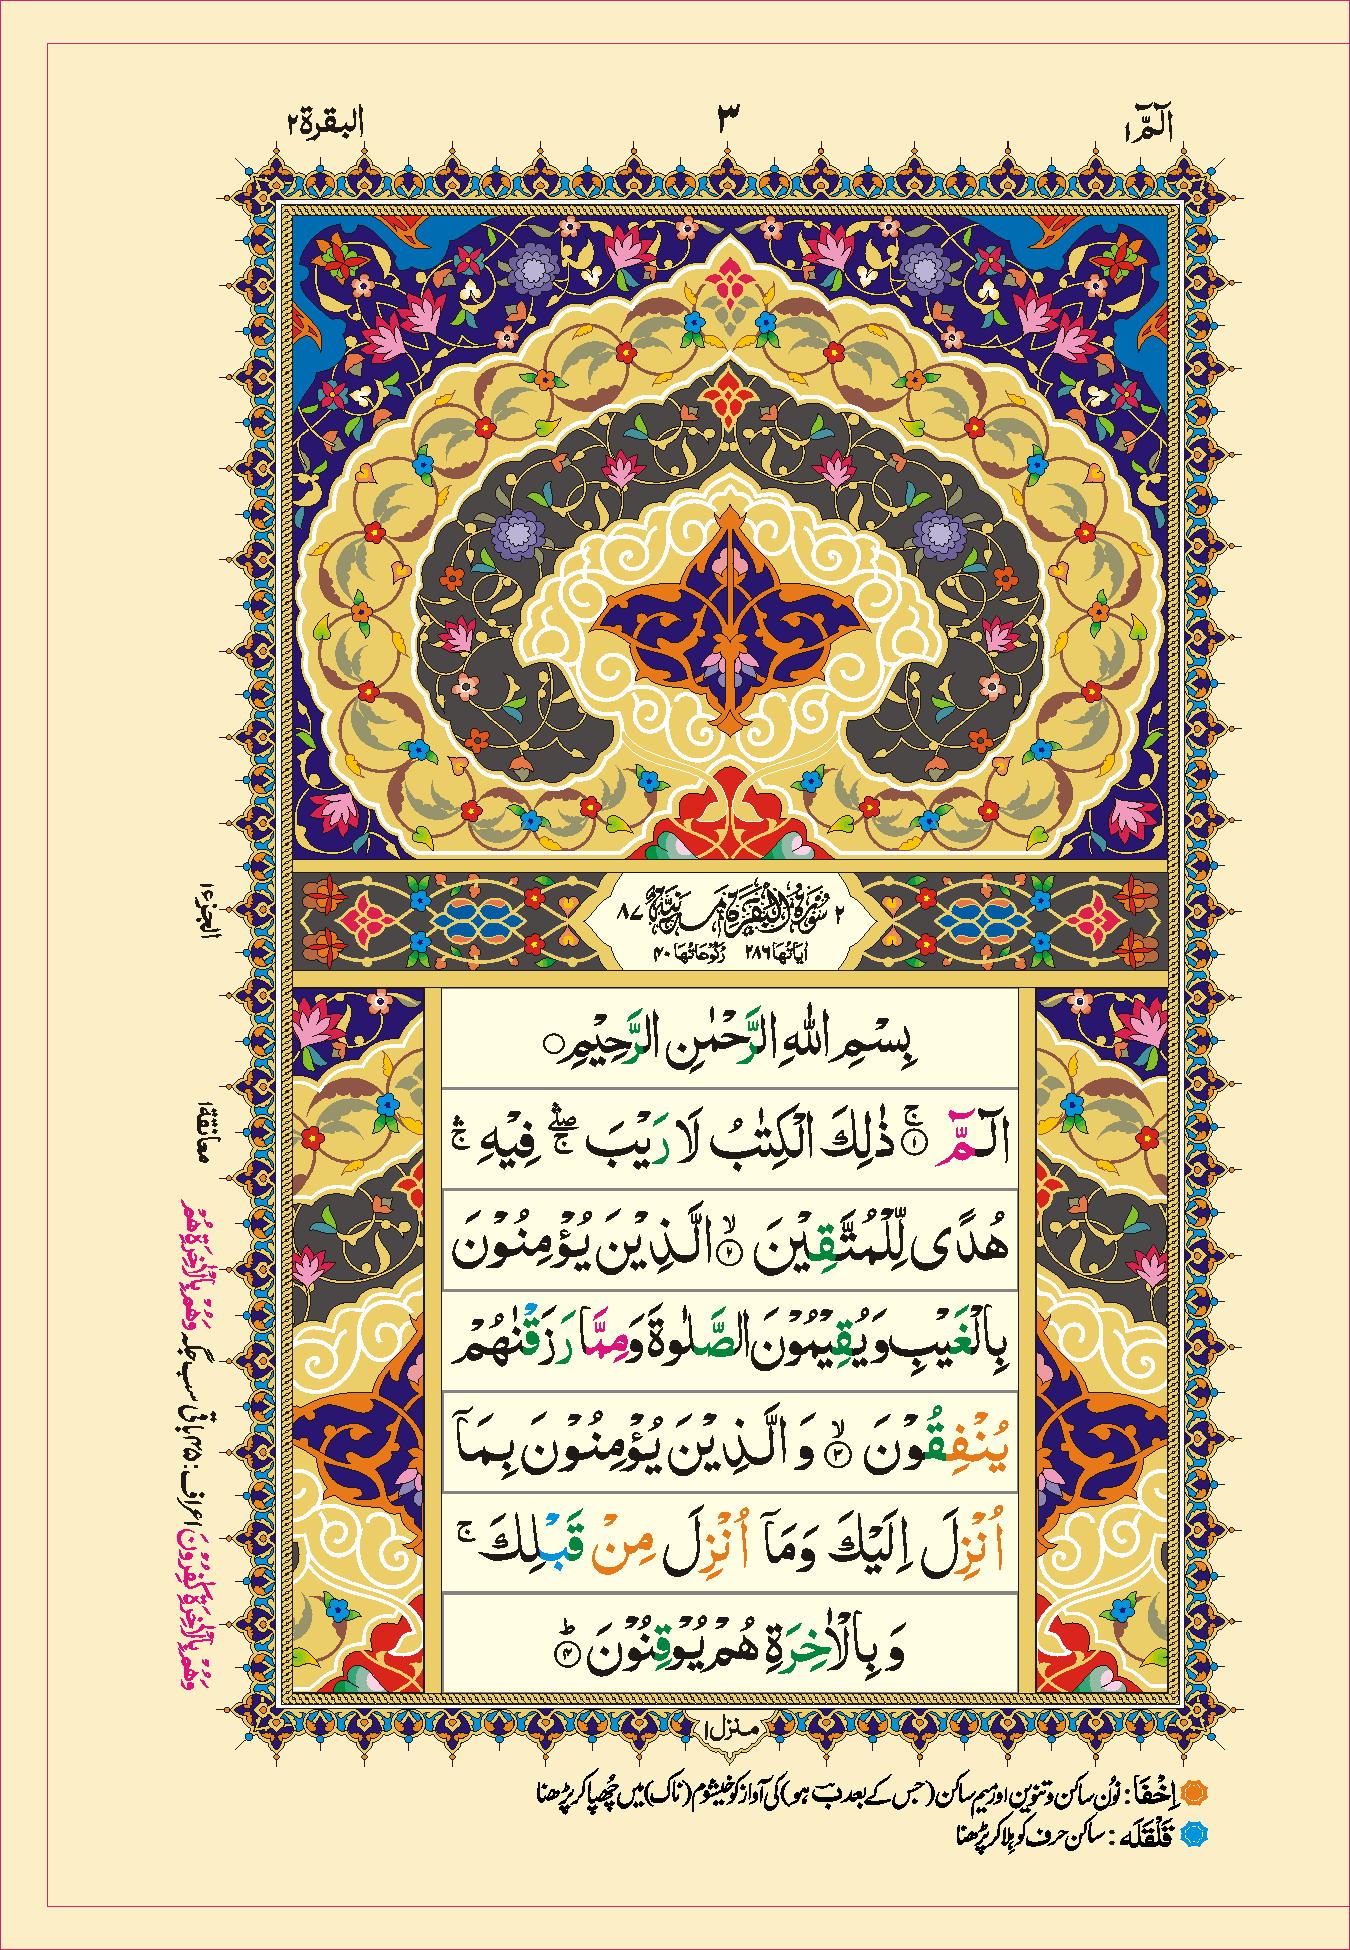 الٓمّٓ ۱
۳
البقرة ۲
۲ سُوْرَةُ الْبَقَرَةِ مَدَنِيَّةٌ ۸۷
اٰيَاتُهَا ۲۸۶ رُكُوْعَاتُهَا ۴۰
بِسْمِ اللّٰهِ الرَّحْمٰنِ الرَّحِيْمِ ○
الٓمّٓ ۚ ﴿۱﴾ ذٰلِكَ الْكِتٰبُ لَا رَيْبَ ۛۖۚ فِيْهِ ۛۚ
هُدًى لِّلْمُتَّقِيْنَ ۙ ﴿۲﴾ الَّذِيْنَ يُؤْمِنُوْنَ
بِالْغَيْبِ وَيُقِيْمُوْنَ الصَّلٰوةَ وَمِمَّا رَزَقْنٰهُمْ
يُنْفِقُوْنَ ۙ ﴿۳﴾ وَالَّذِيْنَ يُؤْمِنُوْنَ بِمَآ
اُنْزِلَ اِلَيْكَ وَمَآ اُنْزِلَ مِنْ قَبْلِكَ ۚ
وَبِالْاٰخِرَةِ هُمْ يُوْقِنُوْنَ ؕ ﴿۴﴾
الجزء ۱
معانقة ۱
وَهُمْ بِالْاٰخِرَةِ كٰفِرُوْنَ اعراف: ۴۵ باقی سب جگہ وَهُمْ بِالْاٰخِرَةِ هُمْ
منزل ۱
اِخْفَا: نُون ساکن و تنوین اور میم ساکن (جس کے بعد ب ہو) کی آواز کو خیشوم (ناک) میں چُھپا کر پڑھنا
قَلْقَلَه: ساکن حرف کو ہِلا کر پڑھنا